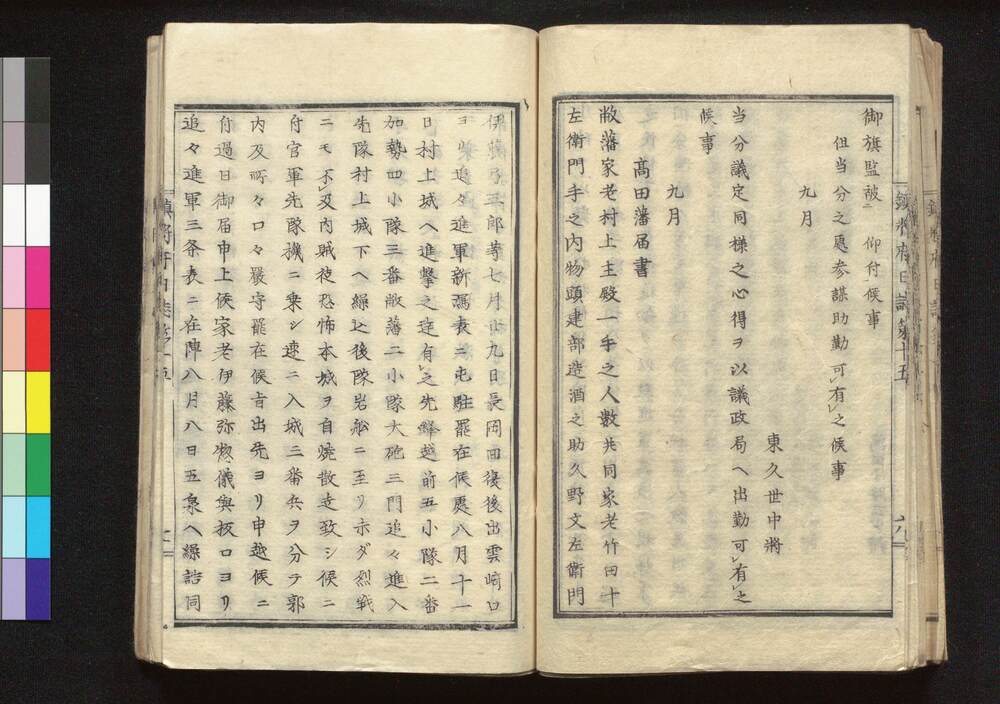 御旗監被 仰付候事
但当分之處参謀助勤可有之候事
九月
東久世中将
当分議定同様之心得ヲ以議政局ヘ出勤可有之
候事
九月
高田藩届書
敝藩家老村上主殿一手之人數共同家老竹田十
左衛門手之内物頭建部造酒之助久野文左衛門
伊藤弓三郎等七月廿九日長岡回復後出雲崎口
ヨリ追々進軍新潟表ニ屯駐罷在候處八月十一
日村上城ヘ進撃之達有之先鋒越前五小隊二番
加勢四小隊三番敝藩二小隊大砲三門追々進入
先隊村上城下ヘ繰込後隊岩船ニ至リ未ダ烈戦
ニモ不及内賊徒恐怖本城ヲ自焼散走致シ候ニ
付官軍先隊機ニ乗シ速ニ入城三番兵ヲ分テ郭
内及所々口々嚴守罷在候旨出先ヨリ申越候ニ
付過日御届申上候家老伊藤弥惣儀與板口ヨリ
追々進軍三条表ニ在陣八月八日五泉ヘ繰詰同
鎮将府日誌第十五